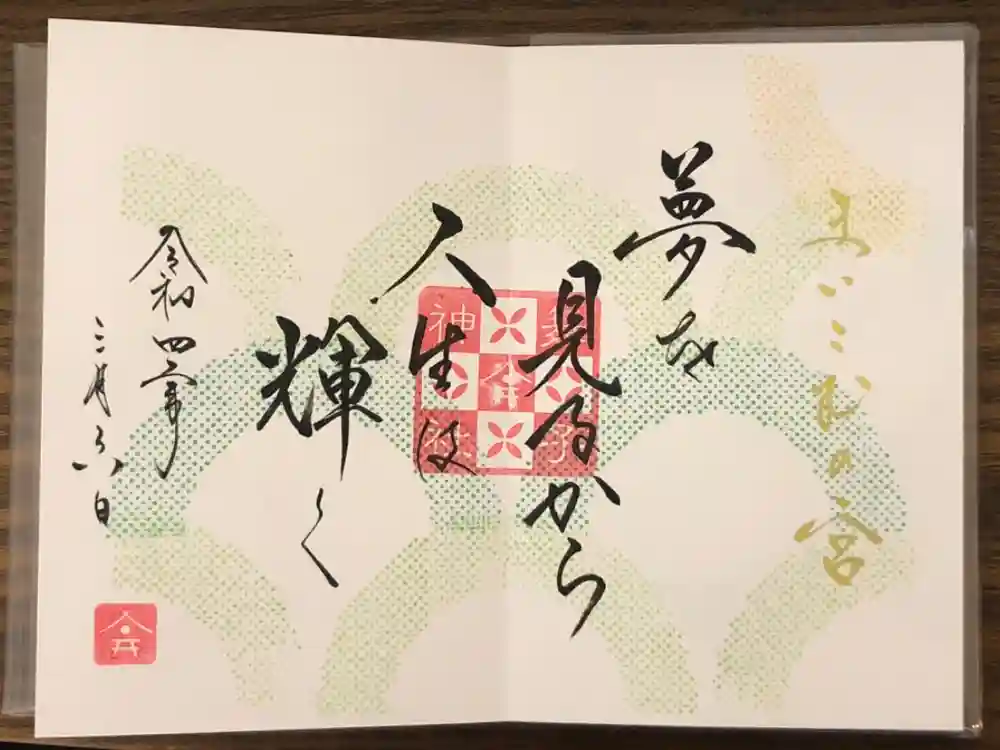 まいこむの宮
夢を
見るから
人生は
輝く
舞子
六
神社
令和四年
三月六日